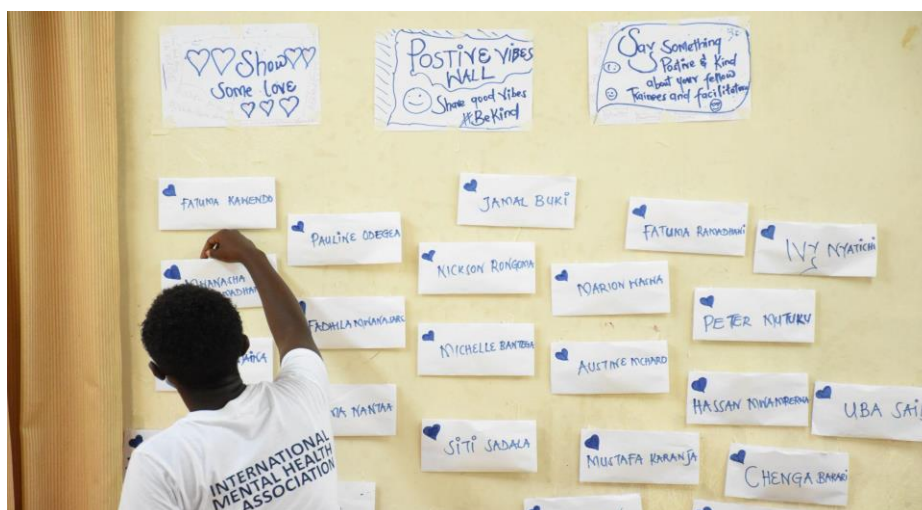 Show
Some Love
POSTIVE VIBES
WALL
Share good vibes
#BeKind
Say Something
Postive & Kind
about your fellow
Trainees and facilitators
FATUMA KAWENDO
PAULINE ODEGEA
JAMAL BUKI
FATUMA RAMADHANI
IVY NYATICHI
MWANASHA
NICKSON RONGOMA
MARION
PETER MUTUKU
FADHILA
MICHELLE
AUSTINE MCHARO
HASSAN
UBA
NANTAA
SITI SADALA
MUSTAFA KARANJA
CHENGA BAKARI
INTERNATIONAL
MENTAL HEALTH
ASSOCIATION